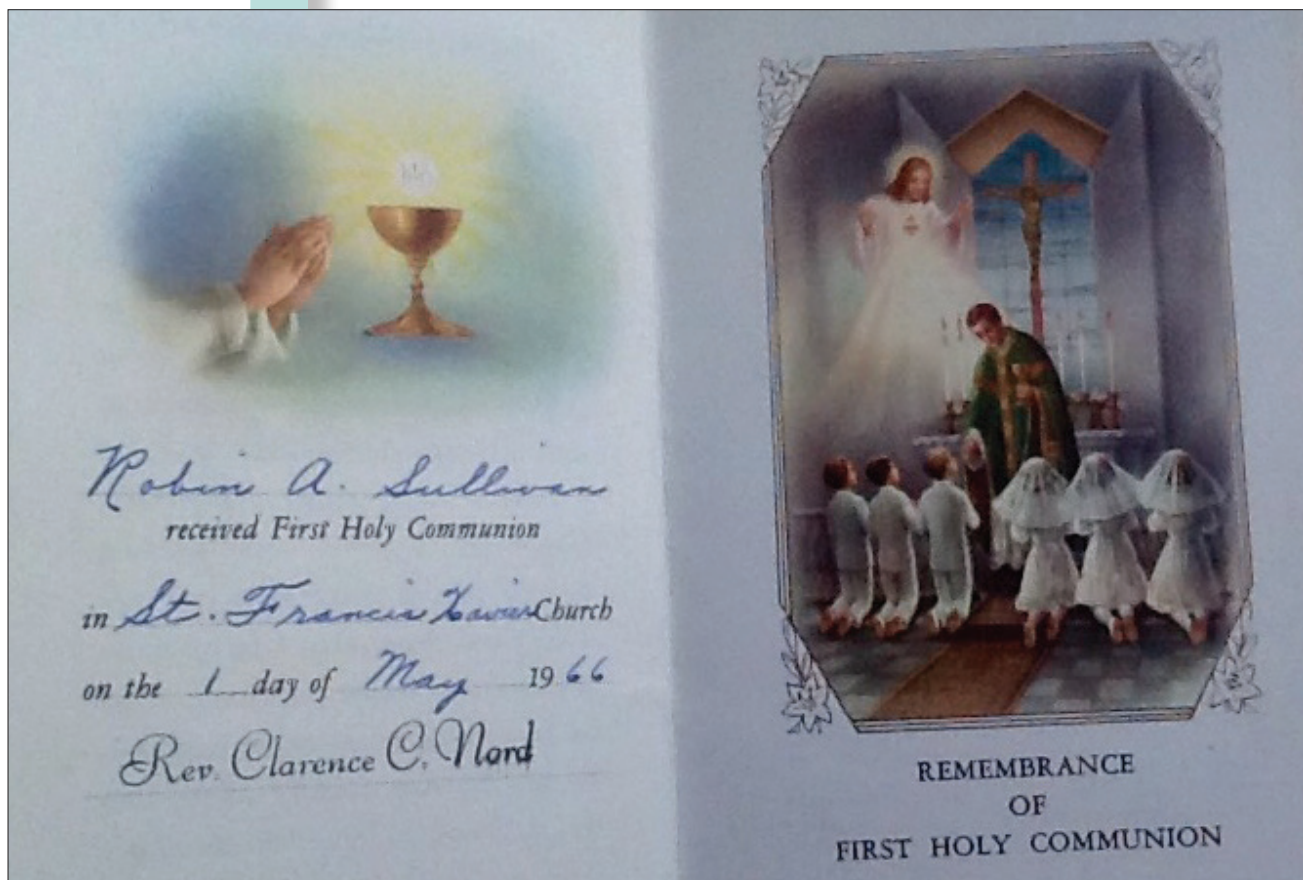 Robin A. Sullivan
received First Holy Communion
in St. Francis Xavier Church
on the 1 day of May 1966
Rev. Clarence C. Nord
REMEMBRANCE
OF
FIRST HOLY COMMUNION